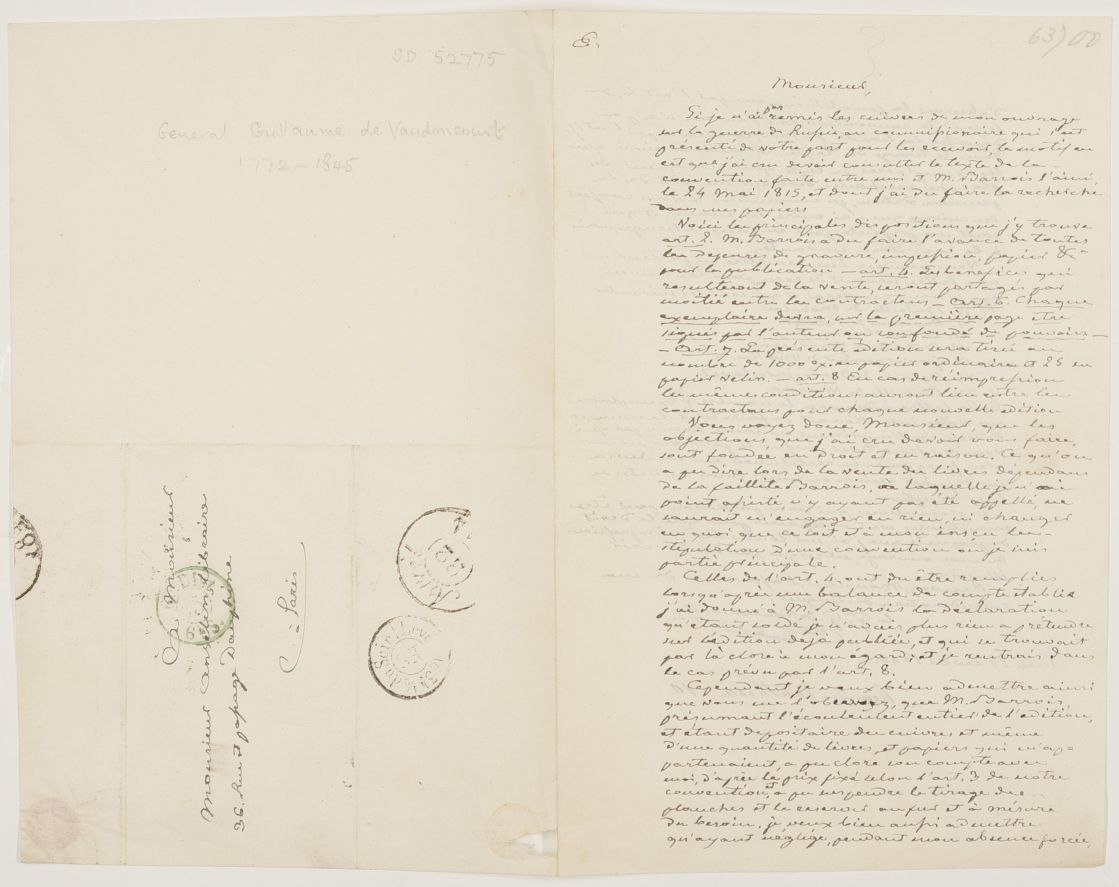 SD 52775
General Guillaume de Vaudoncourt
1772 – 1845
A Monsieur
Monsieur Anselin libraire
36. Rue et passage Dauphine
à Paris
6.
63) 00
Monsieur,
Si je n'ai pas remis les cuivres de mon ouvrage
sur la guerre de Russie, au commissionaire qui s'est
présenté de votre part pour les recevoir, le motif en
est que j'ai cru devoir consulter le texte de la
convention faite entre moi et M. Barrois l'ainé
le 24 Mai 1815, et dont j'ai du faire la recherche
dans mes papiers
Voici les principales dispositions que j'y trouve
art. 2. M. Barrois a du faire l'avance de toutes
les depenses de gravure, impression, papier &c
pour la publication – art. 4. Les benefices qui
resulteront de la vente, seront partagés par
moitié entre les contractans – art. 6. Chaque
exemplaire devra, sur la première page être
signé par l'auteur ou son fondé de pouvoirs –
– Art. 7. La présente édition sera tirée au
nombre de 1000 ex. en papier ordinaire et 25 en
papier velin. – art. 8 En cas de réimpression
les mêmes conditions auront lieu entre les
contractans pour chaque nouvelle edition
Vous voyez donc, Monsieur, que les
objections que j'ai cru devoir vous faire,
sont fondée en droit et en raison. Ce qu'on
a pu dire lors de la vente des livres dépendans
de la faillite Barrois, à laquelle je n'ai
point assisté, n'y ayant pas été appellé, ne
saurait m'engager en rien, ni changer
en quoi que ce soit et à mon insçu les
stipulations d'une convention où je suis
partie principale.
Celles de l'art. 4. ont du être remplies
lorsqu'après une balance de compte établie
j'ai donné à M. Barrois la déclaration
qu'étant soldé je n'avais plus rien a prétendre
sur l'edition déjà publiée, et qui se trouvait
par là close à mon égard; et je rentrais dans
le cas prévu par l'art. 8.
Cependant je veux bien admettre ainsi
que vous me l'observez, que M. Barrois
présumant l'écoulement entier de l'edition,
et étant depositaire des cuivres et même
d'une quantité de livres, et papiers qui m'ap=
partenaient, a pu clore son compte avec
moi, d'après le prix fixé selon l'art. 3 de notre
convention, et a pu suspendre le tirage des
planches et le reserver au fur et à mésure
du besoin. je veux bien aussi admettre
qu'ayant négligé, pendant mon absence forcée,